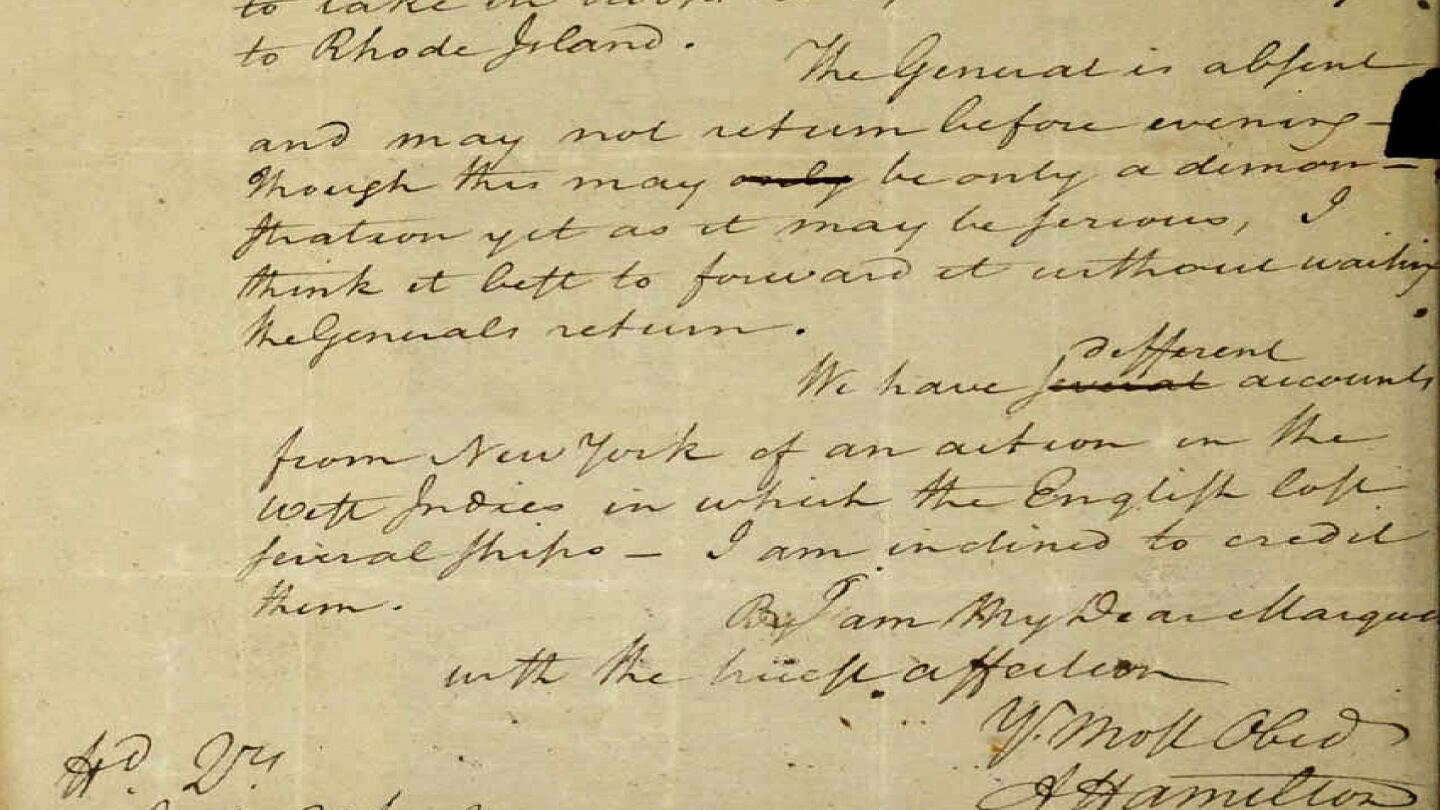 to take in
to Rhode Island.
The General is absent
and may not return before evening –
though this may only be only a demon–
stration yet as it may be serious, I
think it best to forward it without waiting
the Generals return.
different
We have several accounts
from New York of an action in the
West Indies in which the English lost
several ships – I am inclined to credit
them.
I am My Dear Marquis
with the truest affection
Yr. Most Obed
A Hamilton
Hd. Qrs